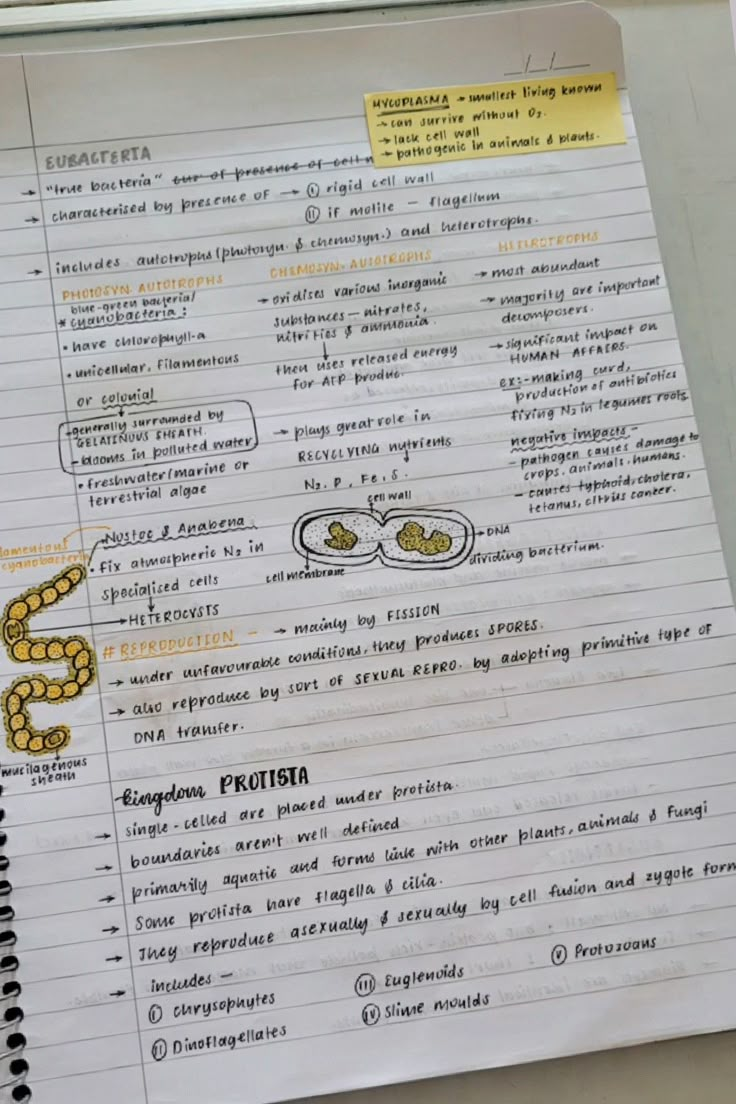 __/__/____
MYCOPLASMA → smallest living known
→ can survive without O₂.
→ lack cell wall
→ pathogenic in animals & plants.
EUBACTERIA
→ "true bacteria" cuz of presence of cell w
→ characterised by presence of → ① rigid cell wall
② if motile – flagellum
→ includes autotrophs (photosyn. & chemosyn.) and heterotrophs.
PHOTOSYN. AUTOTROPHS
blue-green bacteria/
* cyanobacteria :
• have chlorophyll-a
• unicellular, filamentous
or colonial
-generally surrounded by
GELATINOUS SHEATH.
- blooms in polluted water
• freshwater/marine or
terrestrial algae
Nostoc & Anabena
• fix atmospheric N₂ in
specialised cells
→ HETEROCYSTS
lamentous
cyanobacteria
mucilagenous
sheath
CHEMOSYN. AUTOTROPHS
→ oxidises various inorganic
substances – nitrates,
nitrities & ammonia.
then uses released energy
for ATP produc.
→ plays great role in
RECYCLYING nutrients
N₂, P, Fe, S.
cell wall
DNA
dividing bacterium.
cell membrane
HETEROTROPHS
→ most abundant
→ majority are important
decomposers.
→ significant impact on
HUMAN AFFAIRS.
ex:- making curd,
production of antibiotics
fixing N₂ in legumes roots
negative impacts –
- pathogen causes damage to
crops, animals, humans.
- causes typhoid, cholera,
tetanus, citrus canker.
# REPRODUCTION – → mainly by FISSION
→ under unfavourable conditions, they produces SPORES.
→ also reproduce by sort of SEXUAL REPRO. by adopting primitive type of
DNA transfer.
Kingdom PROTISTA
→ single-celled are placed under protista.
→ boundaries aren't well defined
→ primarily aquatic and forms link with other plants, animals & fungi
→ Some protista have flagella & cilia.
→ They reproduce asexually & sexually by cell fusion and zygote form
→ includes –
① chrysophytes
② Dinoflagellates
③ Euglenoids
④ slime moulds
⑤ Protozoans